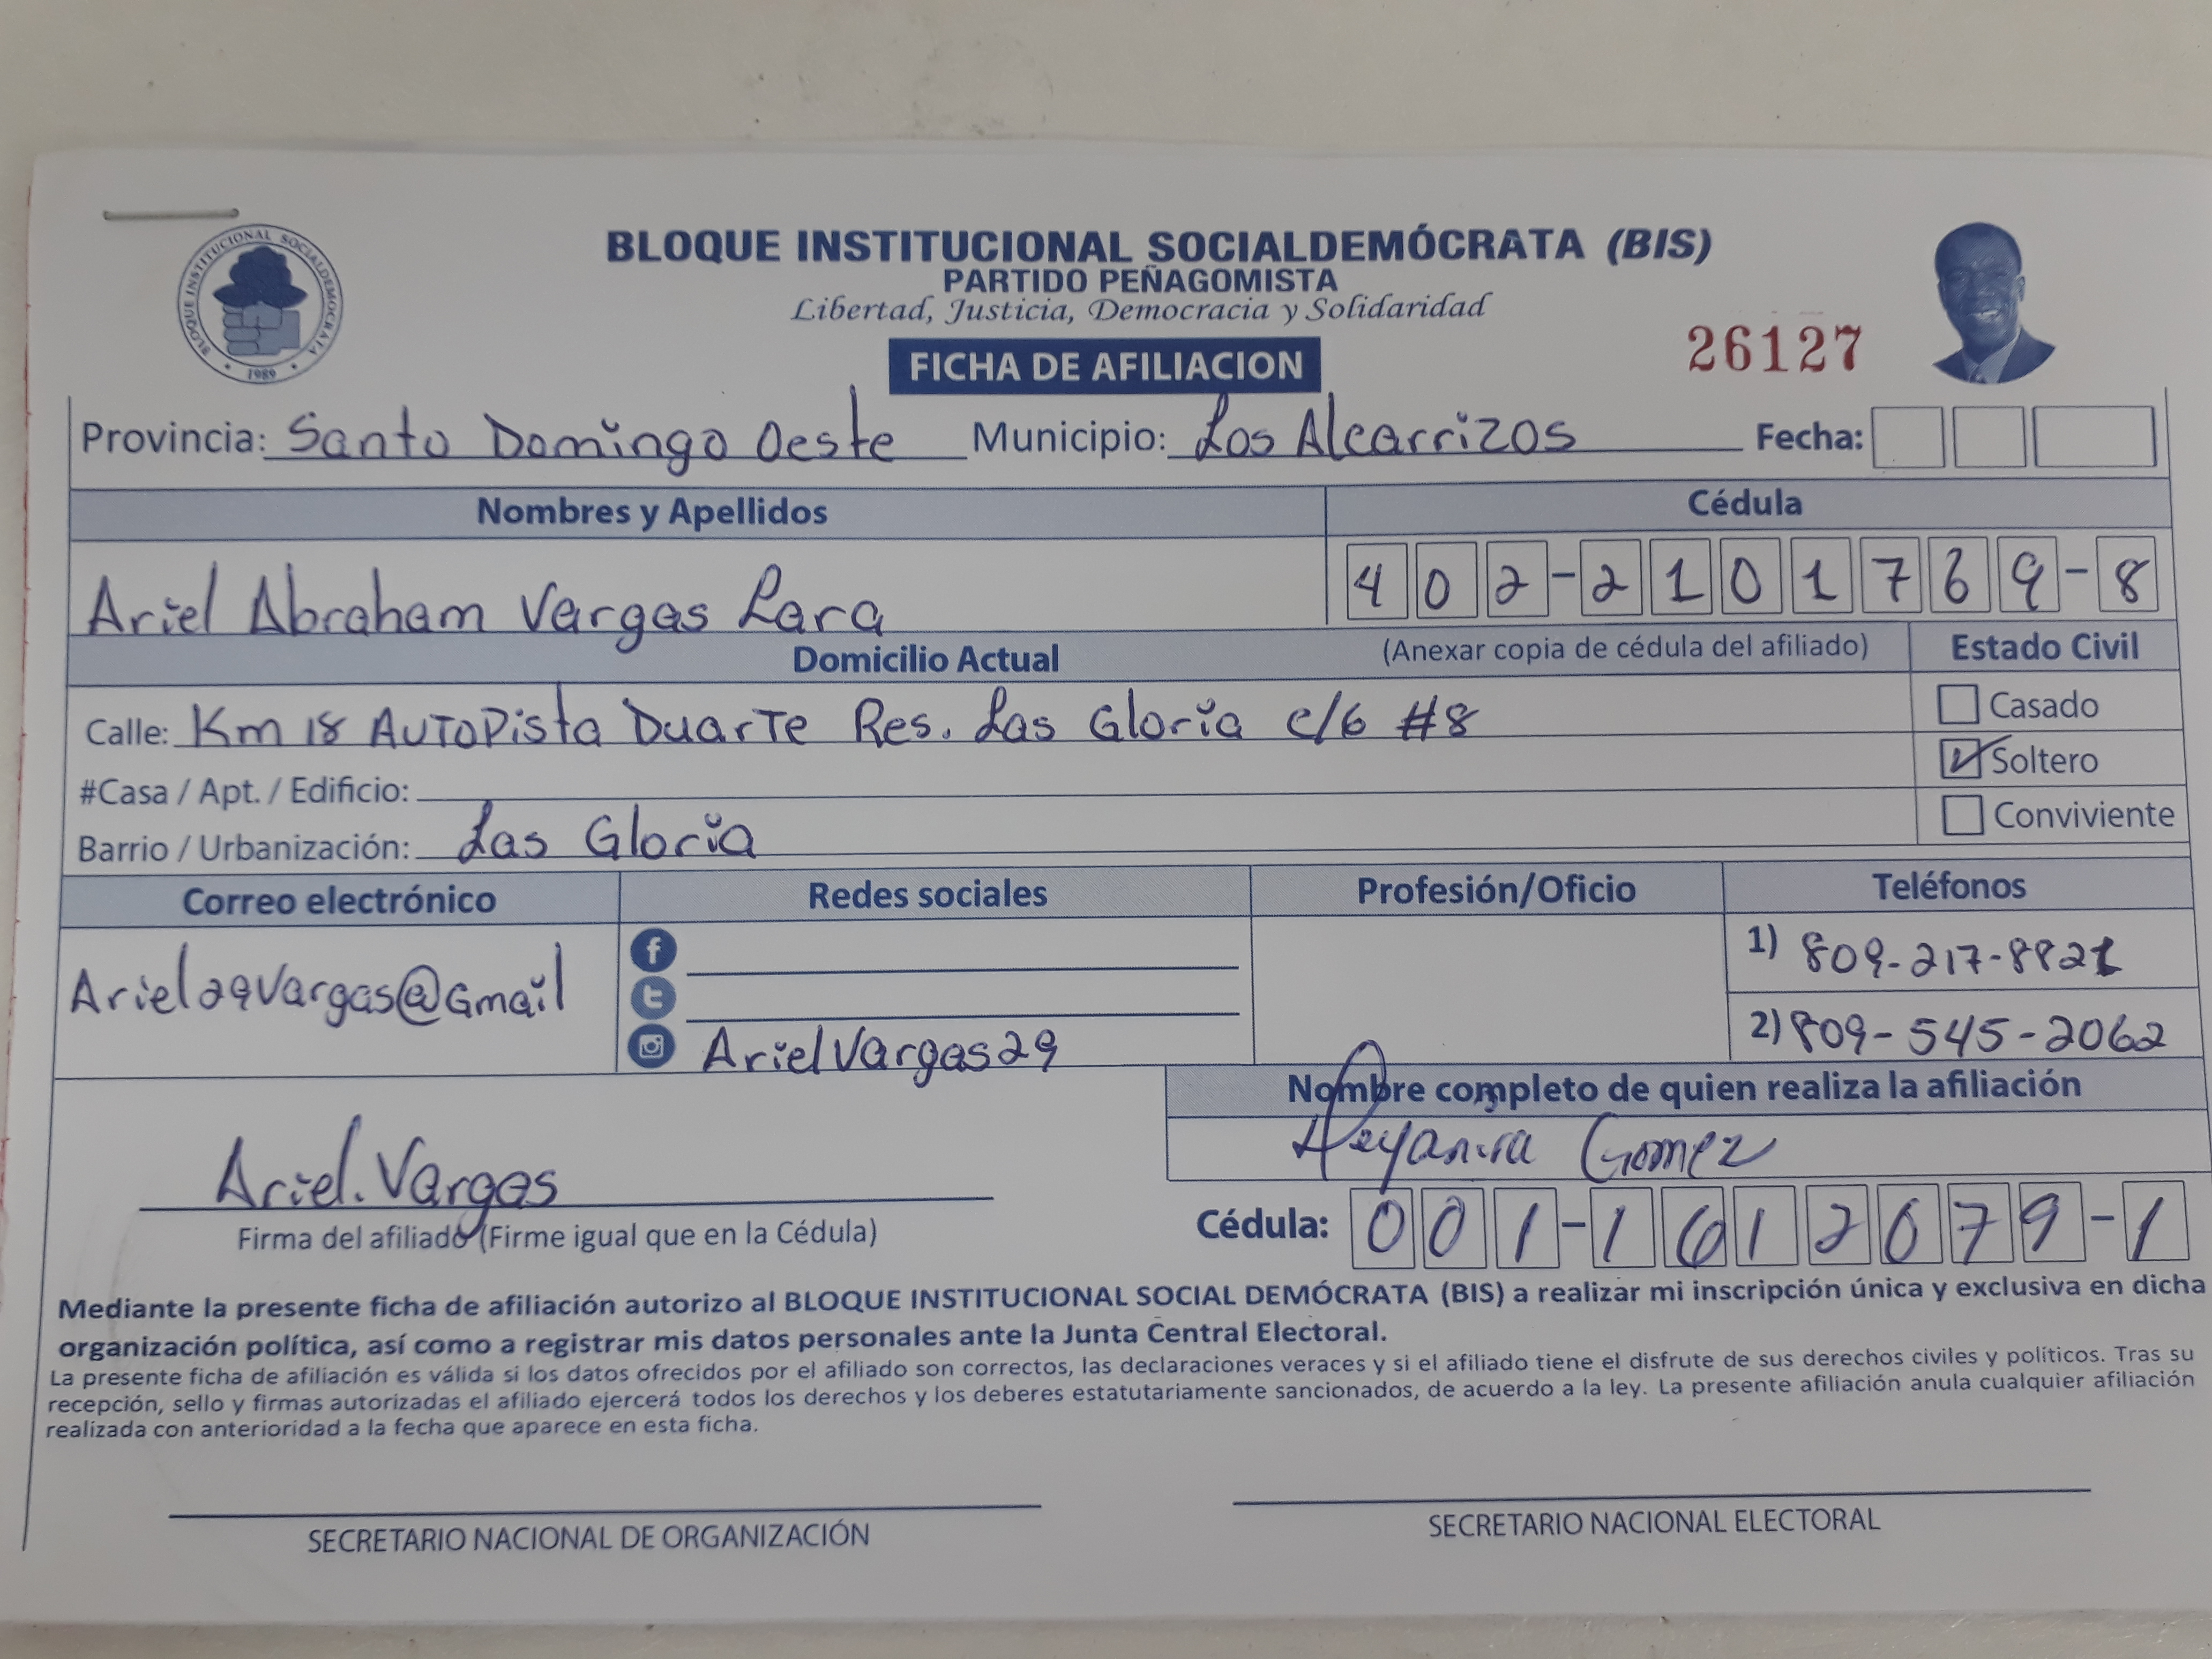 BLOQUE INSTITUCIONAL SOCIALDEMÓCRATA
1989
BLOQUE INSTITUCIONAL SOCIALDEMÓCRATA (BIS)
PARTIDO PEÑAGOMISTA
Libertad, Justicia, Democracia y Solidaridad
FICHA DE AFILIACION
26127
Provincia: Santo Domingo Oeste Municipio: Los Alcarrizos Fecha:
Nombres y Apellidos Cédula
Ariel Abraham Vargas Lara 402-2101769-8
Domicilio Actual (Anexar copia de cédula del afiliado) Estado Civil
Calle: Km 18 AUTOPista DuarTe Res. Las Gloria c/6 #8
Casado
Soltero
Conviviente
#Casa / Apt. / Edificio:
Barrio / Urbanización: Las Gloria
Correo electrónico Redes sociales Profesión/Oficio Teléfonos
Ariel29Vargas@Gmail
f
t
ArielVargas29
1) 809-217-8821
2) 809-545-2062
Nombre completo de quien realiza la afiliación
Deyanira Gomez
Ariel. Vargas
Firma del afiliado (Firme igual que en la Cédula)
Cédula: 001-1612079-1
Mediante la presente ficha de afiliación autorizo al BLOQUE INSTITUCIONAL SOCIAL DEMÓCRATA (BIS) a realizar mi inscripción única y exclusiva en dicha
organización política, así como a registrar mis datos personales ante la Junta Central Electoral.
La presente ficha de afiliación es válida si los datos ofrecidos por el afiliado son correctos, las declaraciones veraces y si el afiliado tiene el disfrute de sus derechos civiles y políticos. Tras su
recepción, sello y firmas autorizadas el afiliado ejercerá todos los derechos y los deberes estatutariamente sancionados, de acuerdo a la ley. La presente afiliación anula cualquier afiliación
realizada con anterioridad a la fecha que aparece en esta ficha.
SECRETARIO NACIONAL DE ORGANIZACIÓN
SECRETARIO NACIONAL ELECTORAL